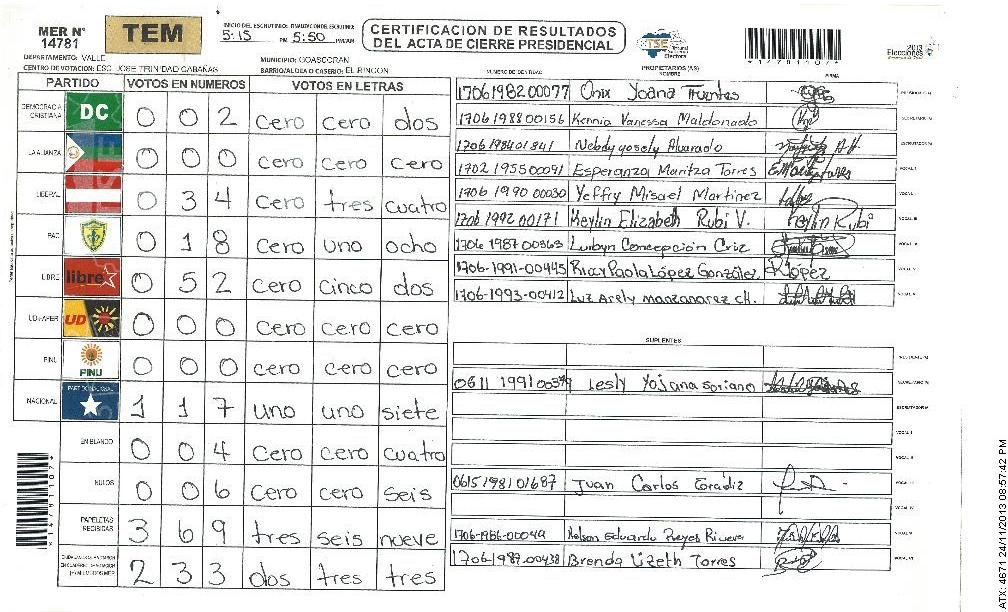 MER N° 14781
TEM
INICIO DEL ESCRUTINIO: FINALIZACION DE ESCRUTINIO:
5:15 PM 5:50 PM/AM
CERTIFICACION DE RESULTADOS
DEL ACTA DE CIERRE PRESIDENCIAL
TSE Tribunal Supremo Electoral
2013
Elecciones
*14781107*
DEPARTAMENTO: VALLE
MUNICIPIO: GOASCORAN
CENTRO DE VOTACION: ESC. JOSE TRINIDAD CABAÑAS
BARRIO/ALDEA O CASERIO: EL RINCON
PARTIDO VOTOS EN NUMEROS VOTOS EN LETRAS
DEMOCRACIA CRISTIANA DC 0 0 2 cero cero dos
LA ALIANZA 0 0 0 cero cero cero
LIBERAL 0 3 4 cero tres cuatro
PAC 0 1 8 cero uno ocho
LIBRE libre 0 5 2 cero cinco dos
UD-FAPER UD 0 0 0 cero cero cero
PINU PINU 0 0 0 cero cero cero
NACIONAL PARTIDO NACIONAL 1 1 7 uno uno siete
EN BLANCO 0 0 4 cero cero cuatro
NULOS 0 0 6 cero cero seis
PAPELETAS RECIBIDAS 3 6 9 tres seis nueve
2 3 3 dos tres tres
NUMERO DE IDENTIDAD PROPIETARIOS (AS) NOMBRE FIRMA
1706198200077 Onix Yoana Fuentes
1706198800156 Kennia Vanessa Maldonado
1706198401841 Nebdy yosely Alvarado
1702195500091 Esperanza Maritza Torres
1706 1990 00030 Yeffry Misael Martinez
1706 1992 00171 Keylin Elizabeth Rubi V. Keylin Rubi
1706 1987 00363 Concepcion Cruz
1706-1991-00445 Paola López González López
1706-1993-00412 Luz Arely manzanarez CH.
SUPLENTES
0611 1991 Lesly Yojana Soriano
0615198101687 Juan Carlos
1706-1986-00049 Nelson Eduardo Reyes Rivera
1706-1987-00438 Brenda Lizeth Torres
*14781107*
ATX: 4671 24/11/2013 08:57:42 PM